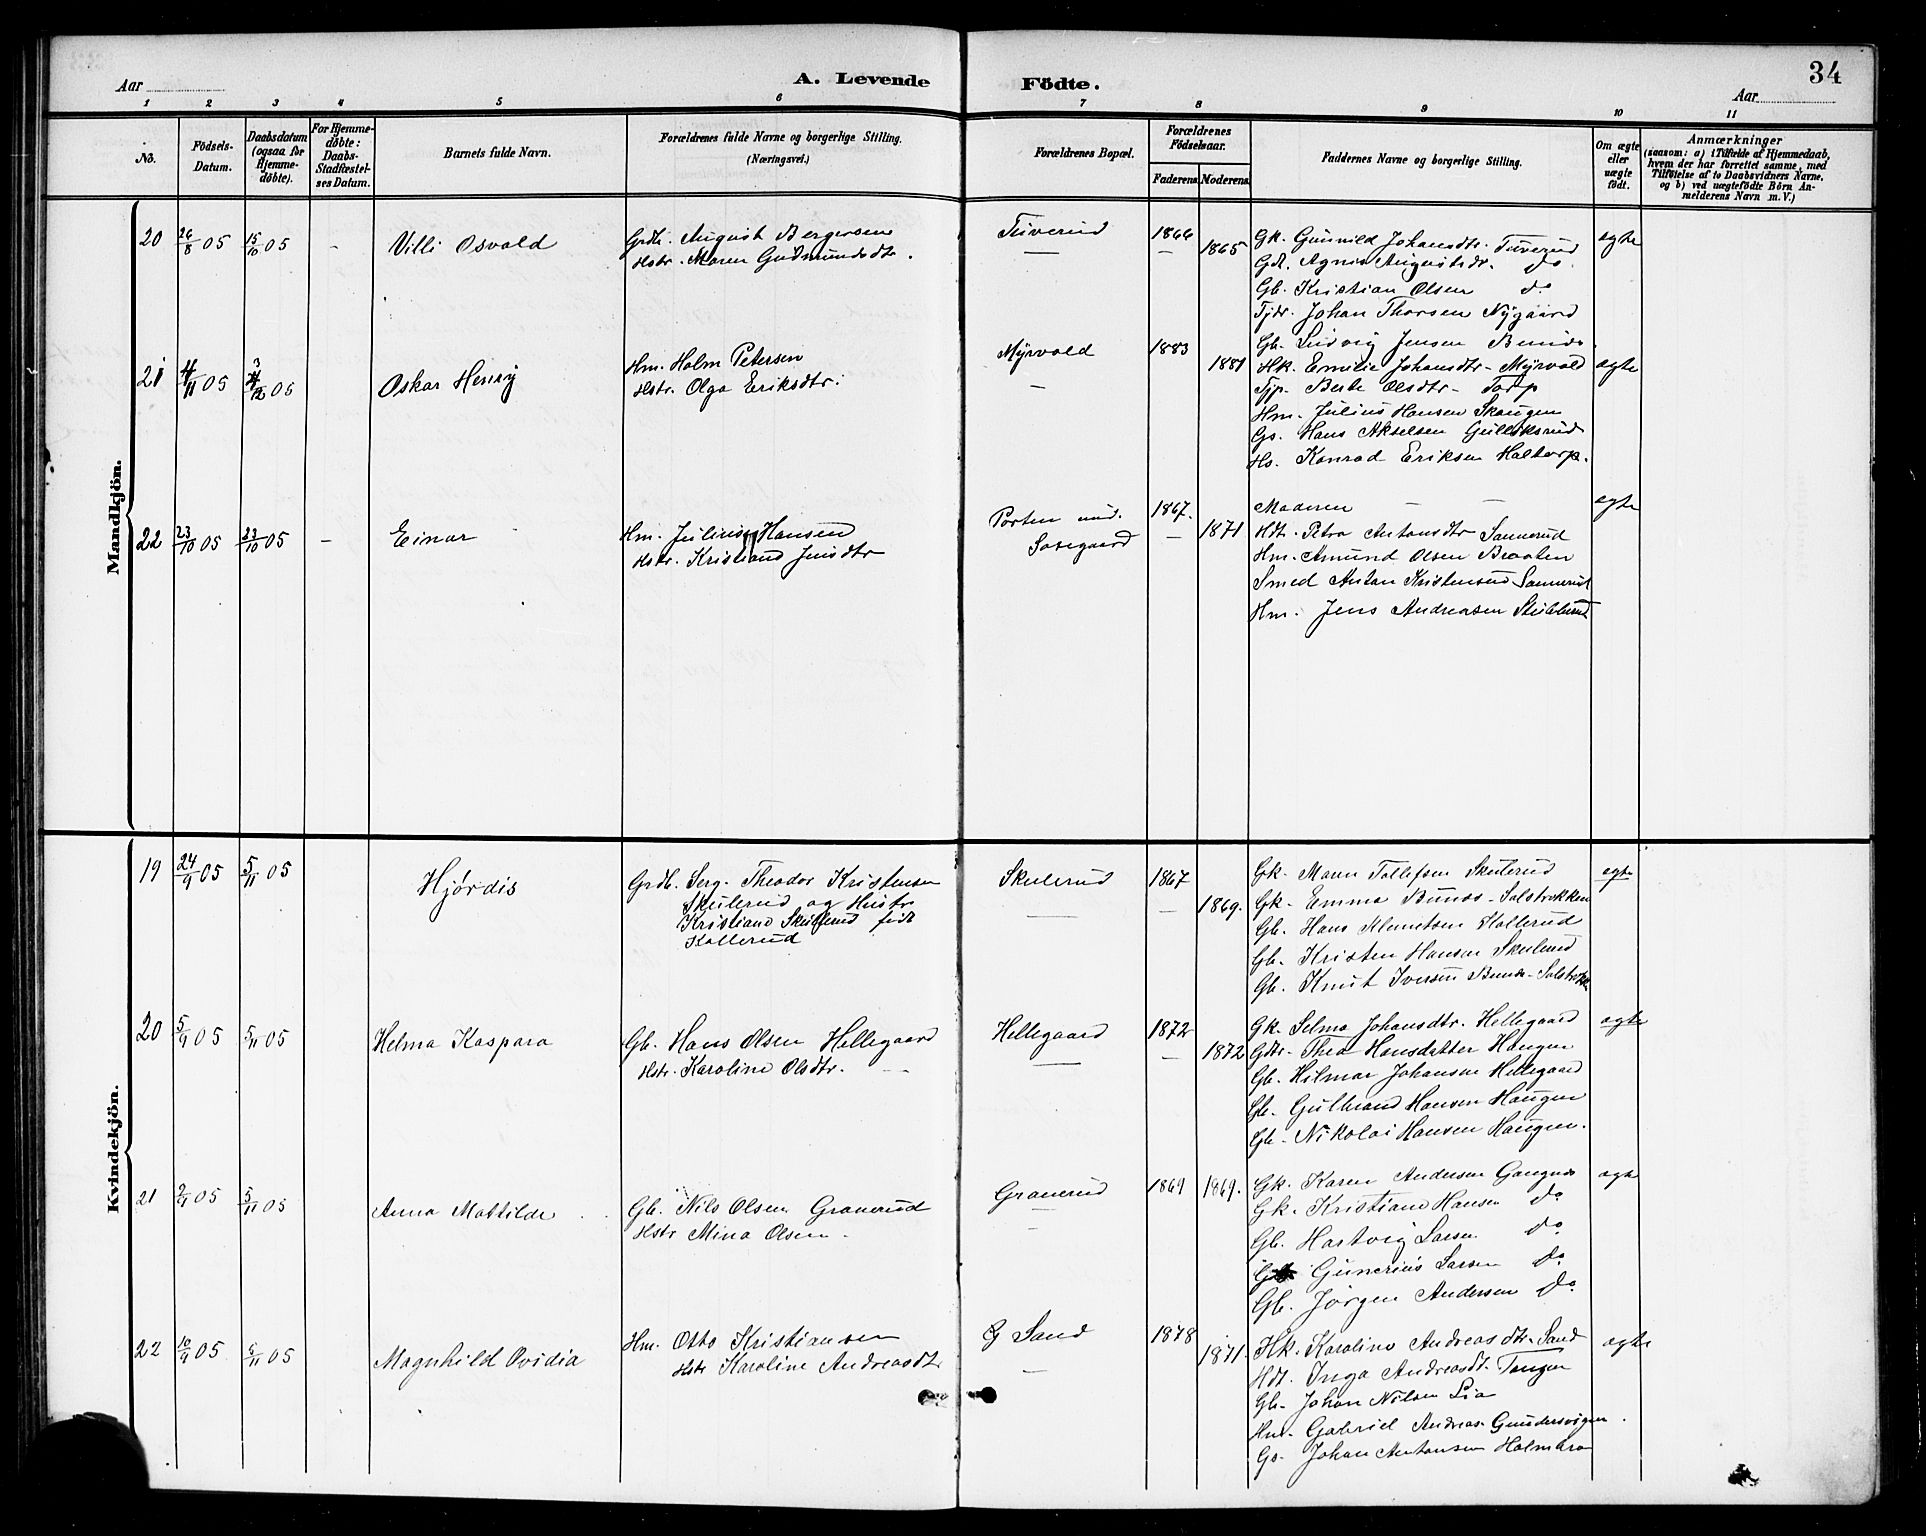 34
Aar
A. Levende Födte.
Aar
1 2 3 4 5 6 7 8 9 10 11
No.
Födsels-Datum.
Daabsdatum (ogsaa for Hjemme-döbte).
For Hjemme-döbte: Daabs-Stadfæstel-ses Datum.
Barnets fulde Navn.
Forældrenes fulde Navne og borgerlige Stilling.
(Næringsvei.)
Forældrenes Bopæl.
Forældrenes Födselsaar.
Faderens.
Moderens.
Faddernes Navne og borgerlige Stilling.
Om ægte eller uægte födt.
Anmærkninger
(saasom: a) i Tilfælde af Hjemmedaab, hvem der har forrettet samme, med Tilföielse af to Daabsvidners Navne, og b) ved uægtefödte Börn An-melderens Navn m. V.)
Mandkjön.
20 26/8 05 15/10 05 - Villi Osvald
Grdb. August Bergersen
Hstr. Maren Gudmundsdtr.
Tuverud 1866 — 1865
Gk. Gunnild Johansdtr. Tuverud
Gdt. Agnes Augustsdr. do.
Gb. Kristian Olsen do
Tjdr. Johan Thorsen Nygaard
ægte
21 4/11 05 3/12 05 Oskar Henry
Hm. Holm Petersen
Hstr. Olga Eriksdtr.
Myrvold — 1883 1881
Gb. Ludvig Jensen
Hk. Emilie Johansdtr - Myrvold
Tjp. Berte Olsdtr - Torp
Hm. Julius Hansen Skaugen
Gs. Hans Akselsen Gulleksrud
Hs. Konrad Eriksen Holtorp.
ægte
22 23/10 05 23/10 05 - Einar
Hm. Julius Hansen
Hstr. Kristiane Jensdtr
Porten und. Sosegaard 1867. — 1871
Moderen — —
Hdt. Petra Antonsdtr Sannerud
Hm. Amund Olsen Braaten
Smed Anton Kristensen Sannerud
Hm. Jens Andreasen Stublerud
ægte
Kvindekjön.
19 24/9 05 5/11 05 Hjørdis
Grdb. Serg. Theodor Kristensen
Skulerud og Hustr
Kristiane Skullerud født
Kollerud
Skulerud — 1867 — 1869.
Gk. Maren Tollefsen Skulerud
Gk. Emma Bunæs - Solstrekken
Gb. Hans Klemetsen Kollerud
Gb. Kristen Hansen Skulerud
Gb. Knut Iversen Bunæs-
ægte
20 5/9 05 5/11 05 Helma Kaspara
Gb. Hans Olsen Hellegaard
Hstr. Karoline Olsdtr. —
Hellegaard — 1872 — 1872
Gk. Selma Johansdtr. Hellegaard
Gdtr. Thea Hansdatter Haugen
Gb. Hilmar Johansen Hellegaard
Gb. Gulbrand Hansen Haugen
Gb. Nikolai Hansen Haugen.
ægte
21 2/9 05 5/11 05 Anna Mathilde
Gb. Nils Olsen Granerud
Hstr Mina Olsen -
Granerud — 1869 1869.
Gk. Karen Andersen Gangnæs
Gk. Kristiane Hansen do
Gb. Hartvig Larsen do
Gunerius Larsen do
Gb. Jörgen Andersen do
ægte
22 10/9 05 5/11 05 Magnhild Ovidia
Hm. Otto Kristiansen
Hstr Karoline Andreasdtr
G Sand — 1878 1871.
Hk. Karoline Andreasdtr. Sand
Hdt. Inga Andreasdt. Tangen
Gb. Johan Nilsen Lia
Hm. Gabriel Andreas. Gundersvigen.
Gs. Johan Antonsen Holmbro
ægte